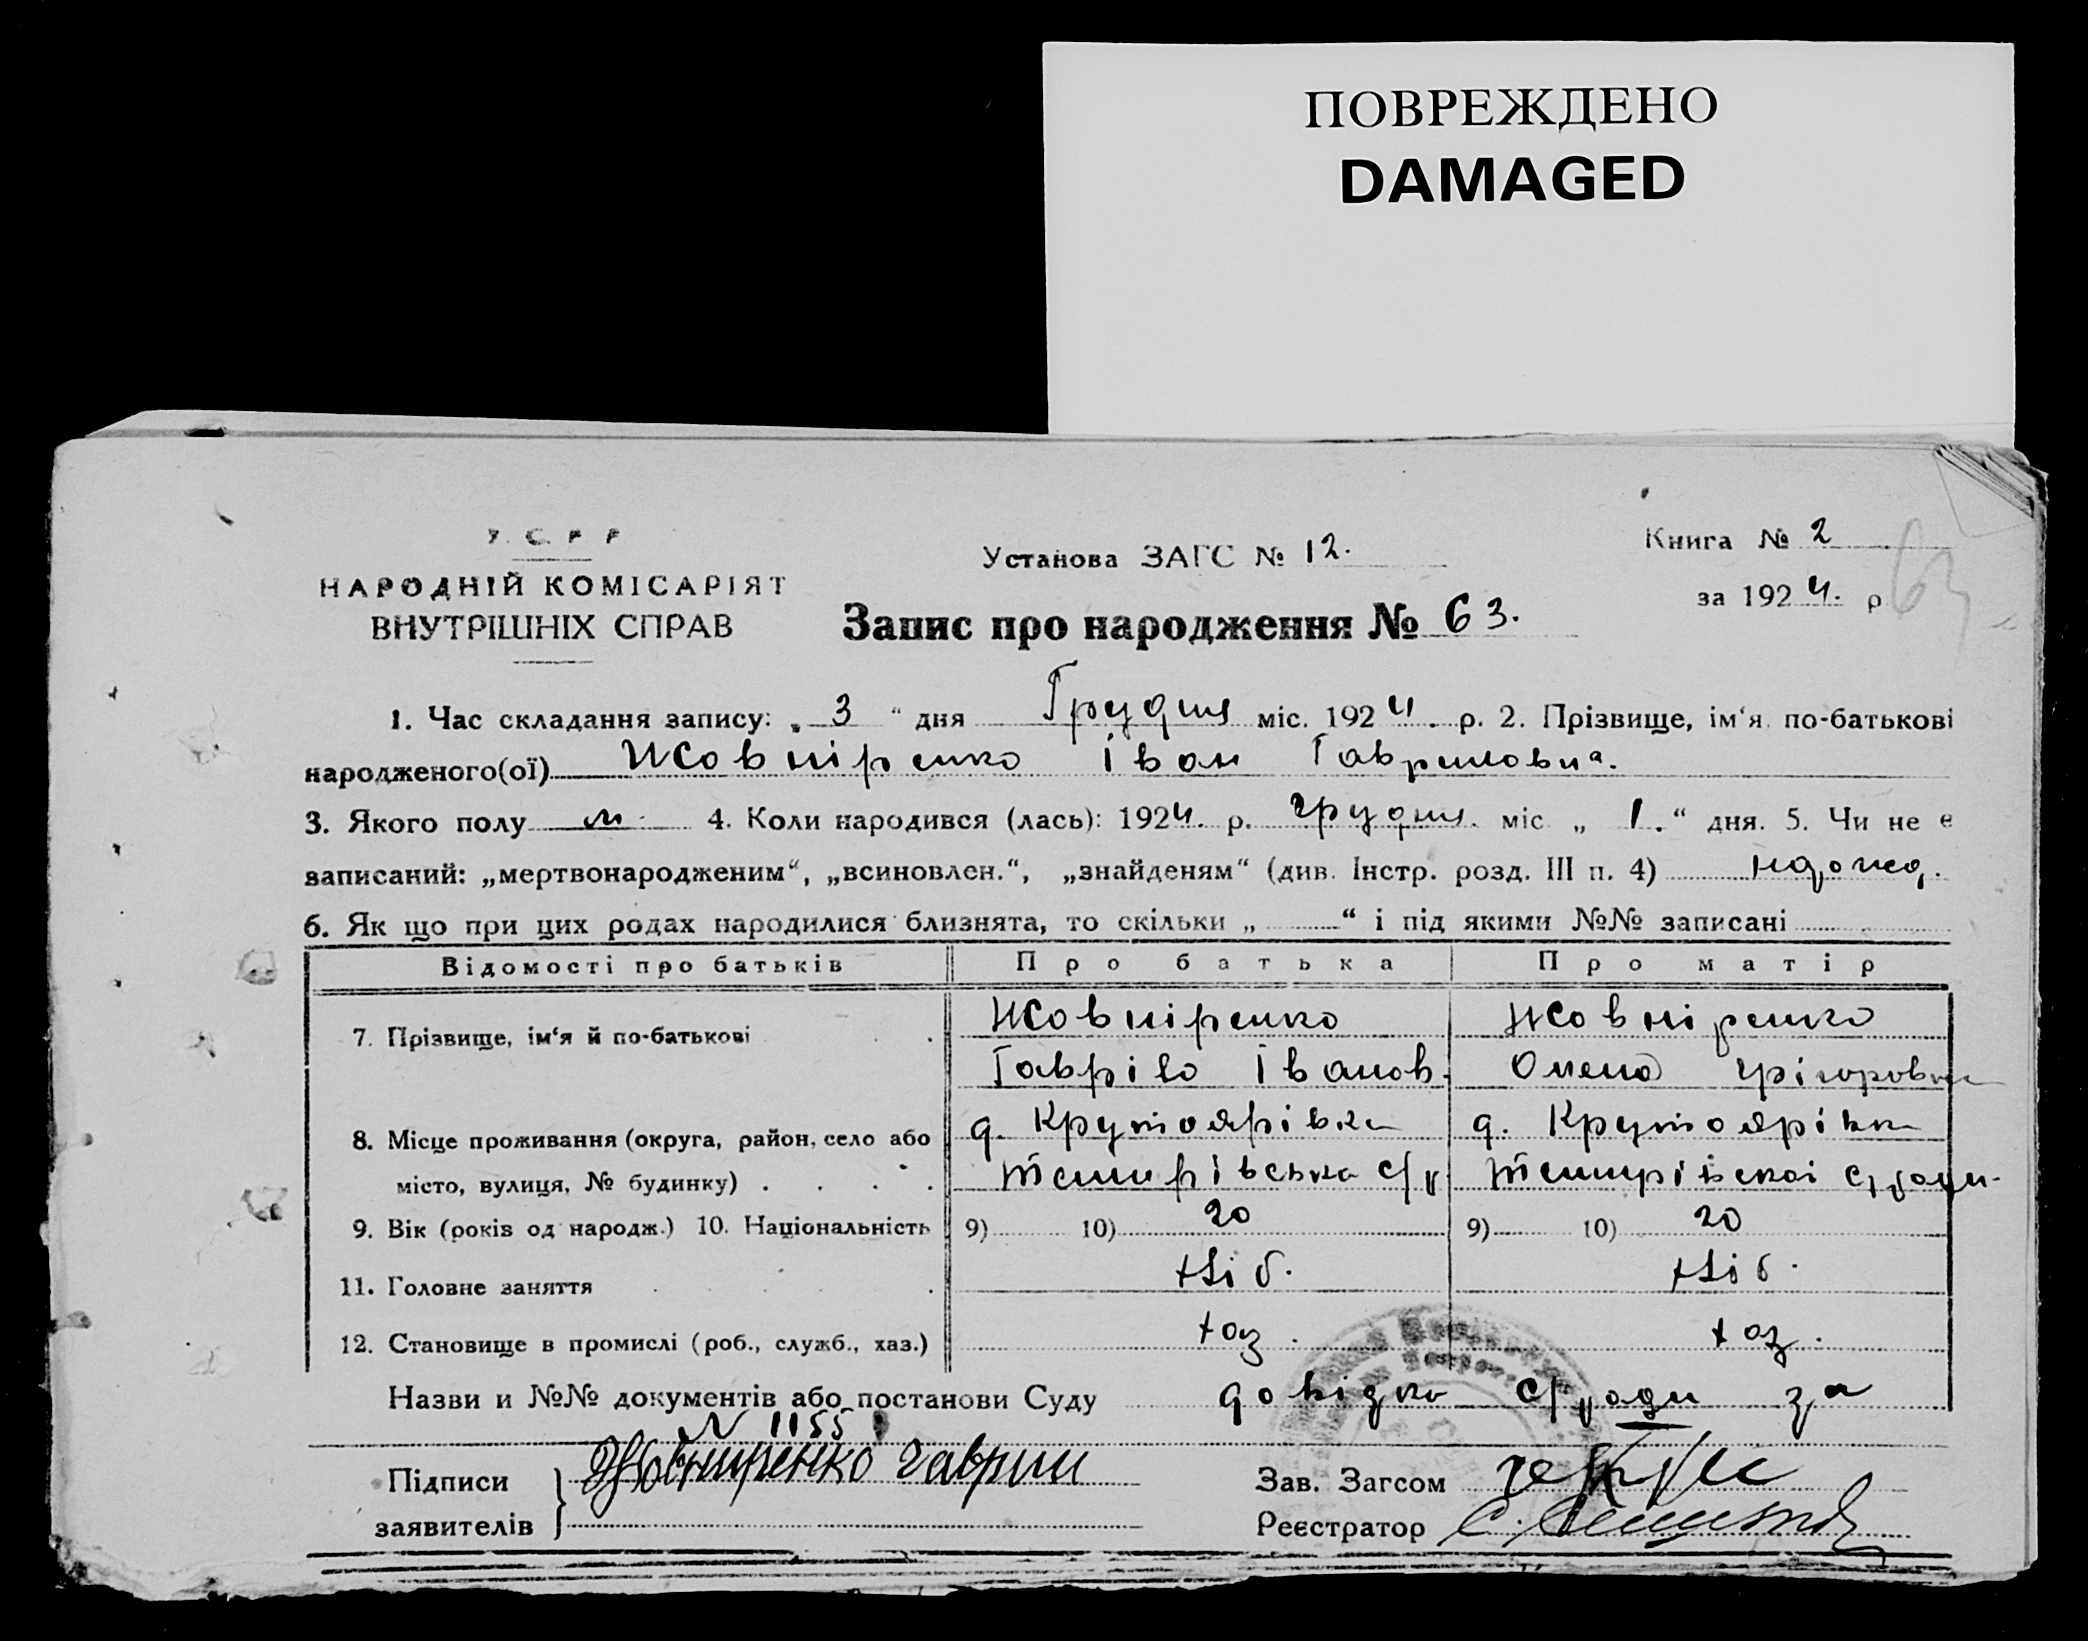 ПОВРЕЖДЕНО
DAMAGED
У. С. Р. Р.
НАРОДНІЙ КОМІСАРІЯТ
ВНУТРІШНІХ СПРАВ
Установа ЗАГС № 12.
Книга № 2
за 1924. р
63
Запис про народження № 63.
1. Час складання запису: „ 3 “ дня Грудня міс. 1924. р. 2. Прізвище, ім‘я по-батькові
народженого(ої) Жовніренко Іван Гаврилович.
3. Якого полу м. 4. Коли народився (лась): 1924. р. грудня. міс „ 1. “ дня. 5. Чи не є
записаний: „мертвонародженим“, „всиновлен.“, „знайденям“ (див. Інстр. розд. III п. 4)
6. Як що при цих родах народилися близнята, то скільки „ “ і під якими №№ записані
Відомості про батьків Про батька Про матір
7. Прізвище, ім‘я й по-батькові Жовніренко Жовніренко
Гавріло Іванов. Олена Грігоровна
8. Місце проживання (округа, район, село або д. Крутоярівка д. Крутоярівка
місто, вулиця, № будинку)
9. Вік (років од народж.) 10. Національність 9) 10) 20 9) 10) 20
11. Головне заняття Хліб. Хліб.
12. Становище в промислі (роб., служб., хаз.) хаз. хаз.
Назви и №№ документів або постанови Суду довідка с/ради за
№ 1155
Підписи Жовниренко Гаврил Зав. Загсом
заявителів Реєстратор С.